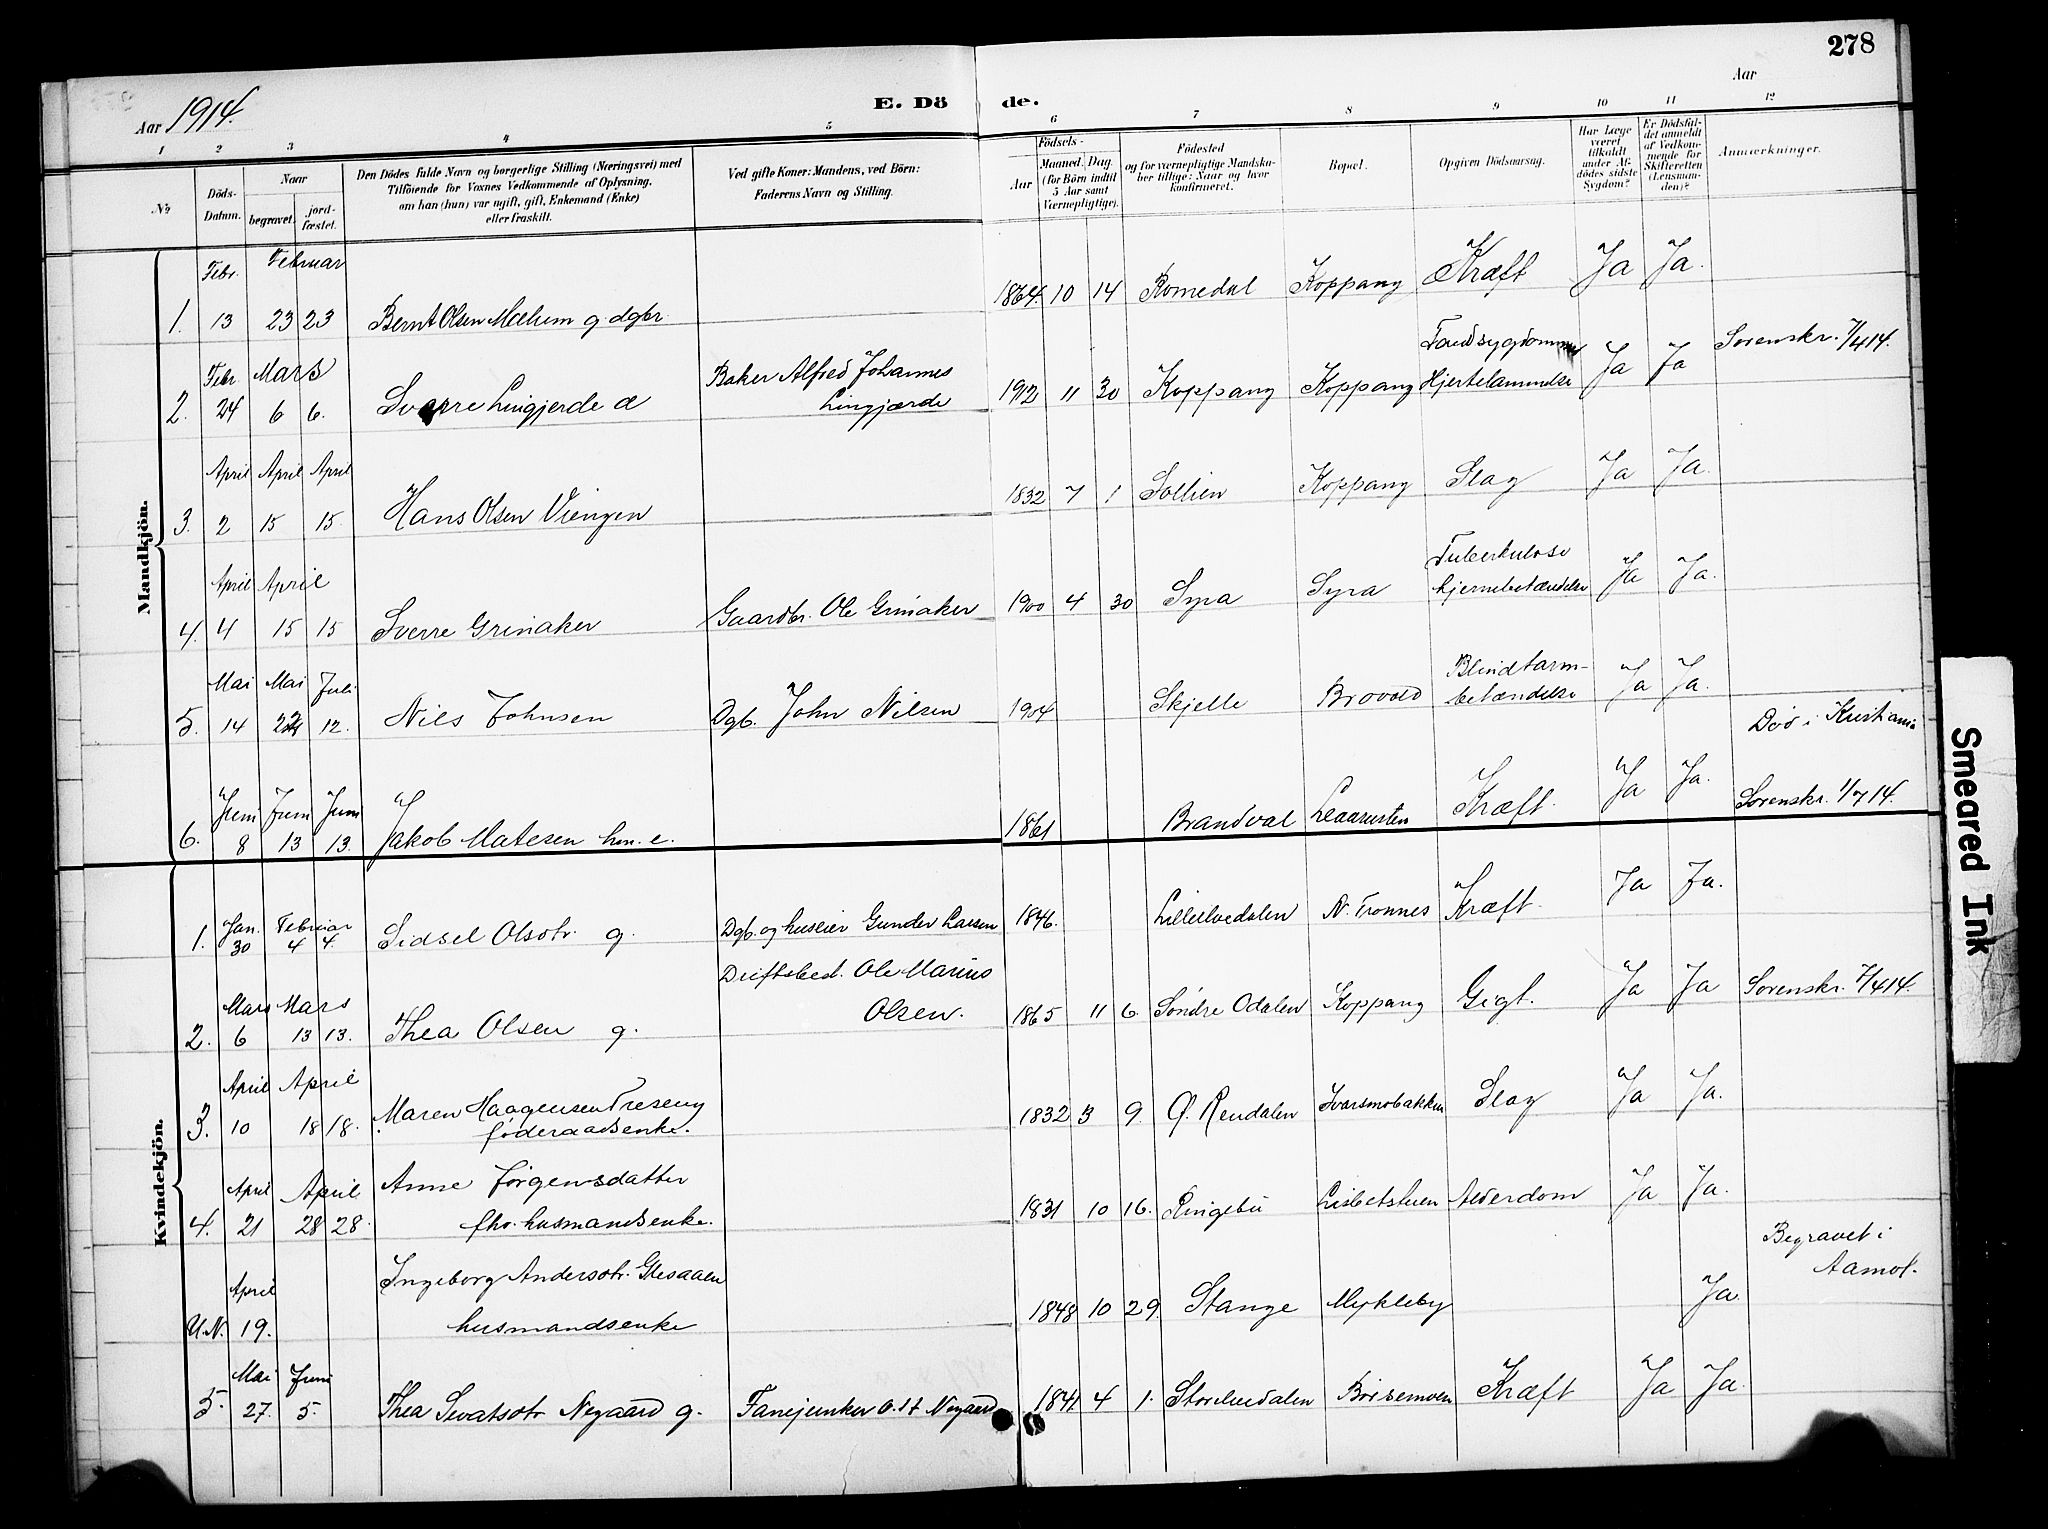 278
Aar 1914.
E. Dö de.
Aar
1 2 3 4 5 6 7 8 9 10 11 12
No
Döds-Datum.
Naar
begravet.
jord-fæstet.
Den Dödes fulde Navn og borgerlige Stilling (Næringsvei) med
Tilföiende for Voxnes Vedkommende af Oplysning,
om han (hun) var ugift, gift, Enkemand (Enke)
eller fraskilt.
Ved gifte Koner: Mandens, ved Börn:
Faderens Navn og Stilling.
Födsels-
Aar
Maaned. Dag.
(for Börn indtil
5 Aar samt
Værnepligtige).
Födested
og for værnepligtige Mandska-
ber tillige: Naar og hvor
konfirmeret.
Bopæl.
Opgiven Dödsaarsag.
Har Læge
været
tilkaldt
under Af-
dödes sidste
Sygdom?
Er Dödsfal-
det anmeldt
af Vedkom-
mende for
Skifteretten
(Lensman-
den)?
Anmærkninger.
Mandkjön.
Febr. Februar
1. 13 23 23 Bernt Olsen Mælum g. dgbr 1864 10 14 Romedal Koppang Kræft Ja Ja.
Febr. Mars Baker Alfred Johannes
2. 24 6 6. Sverre Lingjerde Lingjærde 1912 11 30 Koppang Koppang Hjertelammelse Ja Ja Sorenskr. 7/4 14.
April April April
3. 2 15 15. Hans Olsen Viengen 1832 7 1 Sollien Koppang Slag Ja Ja.
April April Tuberkulose
4. 4 15 15 Sverre Grinaker Gaardbr. Ole Grinaker 1900 4 30 Syra Syra hjernebetændelse Ja Ja.
Mai Mai Juli Blindtarm-
5. 14 12. Nils Johnsen Dgb. John Nilsen 1904 Skjelle Brovold betændelse Ja Ja. Død i Kristiania
Juni Juni Juni
6. 8 13 13. Jakob Matesen hm. e. 1861 Brandval Kræft. Ja Ja. Sorenskr. 1/7 14.
Kvindekjön.
Jan. Februar
1. 30 4 4. Sidsel Olsdtr. g. Dgb. og huseier Gunder Larsen 1846. Lilleelvedalen N. Trønnes Kræft. Ja Ja.
Mars Mars Driftsbest. Ole Marius
2. 6 13 13. Thea Olsen g. Olsen. 1865 11 6. Søndre Odalen Koppang Gigt. Ja Ja Sorenskr. 7/4 14.
April April
3. 10 18 18. Maren Haagensen Treseng
føderaadsenke. 1832 3 9. Ø. Rendalen Ivarsmobakken Slag Ja Ja.
April April Anne Jørgensdatter
4. 21 28 28. fhv. husmandsenke. 1831 10 16. Ringebu Lisbetstuen Alderdom Ja Ja.
April Ingeborg Andersdtr.
U.N. 19. husmandsenke 1848 10 29. Stange Mykleby Ja. Begravet i
Aamot.
Mai Juni
5. 27. 5. Thea Sivatsdtr Negaard g. Fanejunker O. H. Negaard 1841 4 1. Storelvedalen Kræft Ja Ja.
Smeared Ink